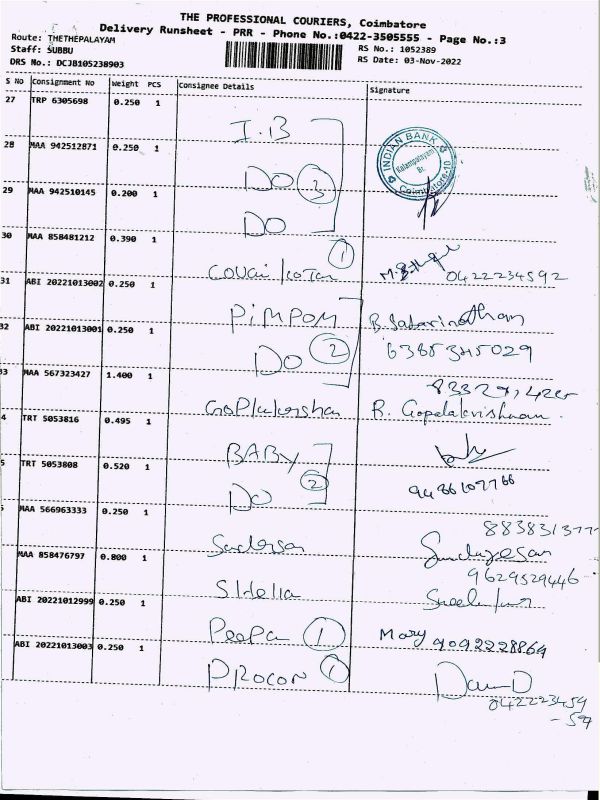 THE PROFESSIONAL COURIERS, Coimbatore
Delivery Runsheet - PRR - Phone No.:0422-3505555 - Page No.:3
Route: THETHEPALAYAM
Staff: SUBBU
DRS No.: DCJB105238903
RS No.: 1052389
RS Date: 03-Nov-2022
S No Consignment No Weight PCS Consignee Details Signature
27 TRP 6305698 0.250 1 I.B
28 MAA 942512871 0.250 1 DO 3
INDIAN BANK
Coimbatore-10
29 MAA 942510145 0.200 1 DO
30 MAA 858481212 0.390 1 1
04222234592
31 ABI 20221013002 0.250 1 PIMPOM
32 ABI 20221013001 0.250 1 DO 2 6385345029
33 MAA 567323427 1.400 1 R. Gopalakrishnan
4 TRT 5053816 0.495 1 BABY
5 TRT 5053808 0.520 1 DO 2
MAA 566963333 0.250 1
883831377
MAA 858476797 0.800 1
9629529446
ABI 20221012999 0.250 1 1 Mary 9092228864
ABI 20221013003 0.250 1 PROCON 1